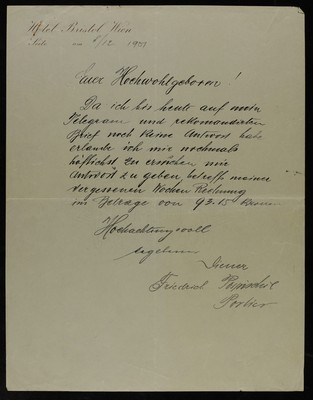 Hotel Bristol, Wien
Suite am 6/12 19
Euer Hochwohlgeboren!
Da ich bis heute auf mein
Telegram und rekomandierten
Brief noch keine Antwort habe
erlaube ich mir nochmals
höflichst zu ersuchen mir
Antwort zu geben, betreffs meiner
vergessenen Wochen Rechnung
im Betrage von 93.15 Kronen
Hochachtungsvoll
ergebener
Diener
Friedrich
Portier